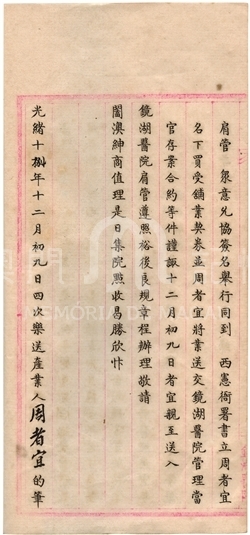 肩管　衆意允協簽名舉行同到　西憲衙署書立周者宜
名下買受舖業契券並周者宜將業送交鏡湖醫院管理當
官存案合約等件謹諏十二月初九日者宜親至送入
鏡湖醫院肩管遵照裕後良規章程辦理敬請
闔澳紳商值理是日集院點收曷勝欣忭
光緒十捌年十二月初九日四次樂送產業人周者宜的筆
MEMÓRIA DE MACAU